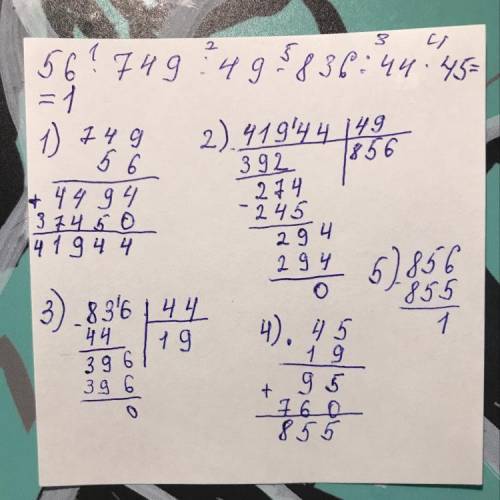 1 2 5 3 4
56 · 749 : 49 - 836 : 44 · 45 =
= 1
1) 749
56
+ 4494
37450
41944
2) - 41944 | 49
392 | 856
274
- 245
294
294
0
3) - 836 | 44
44 | 19
396
396
0
4) · 45
19
+ 95
760
855
5) - 856
855
1